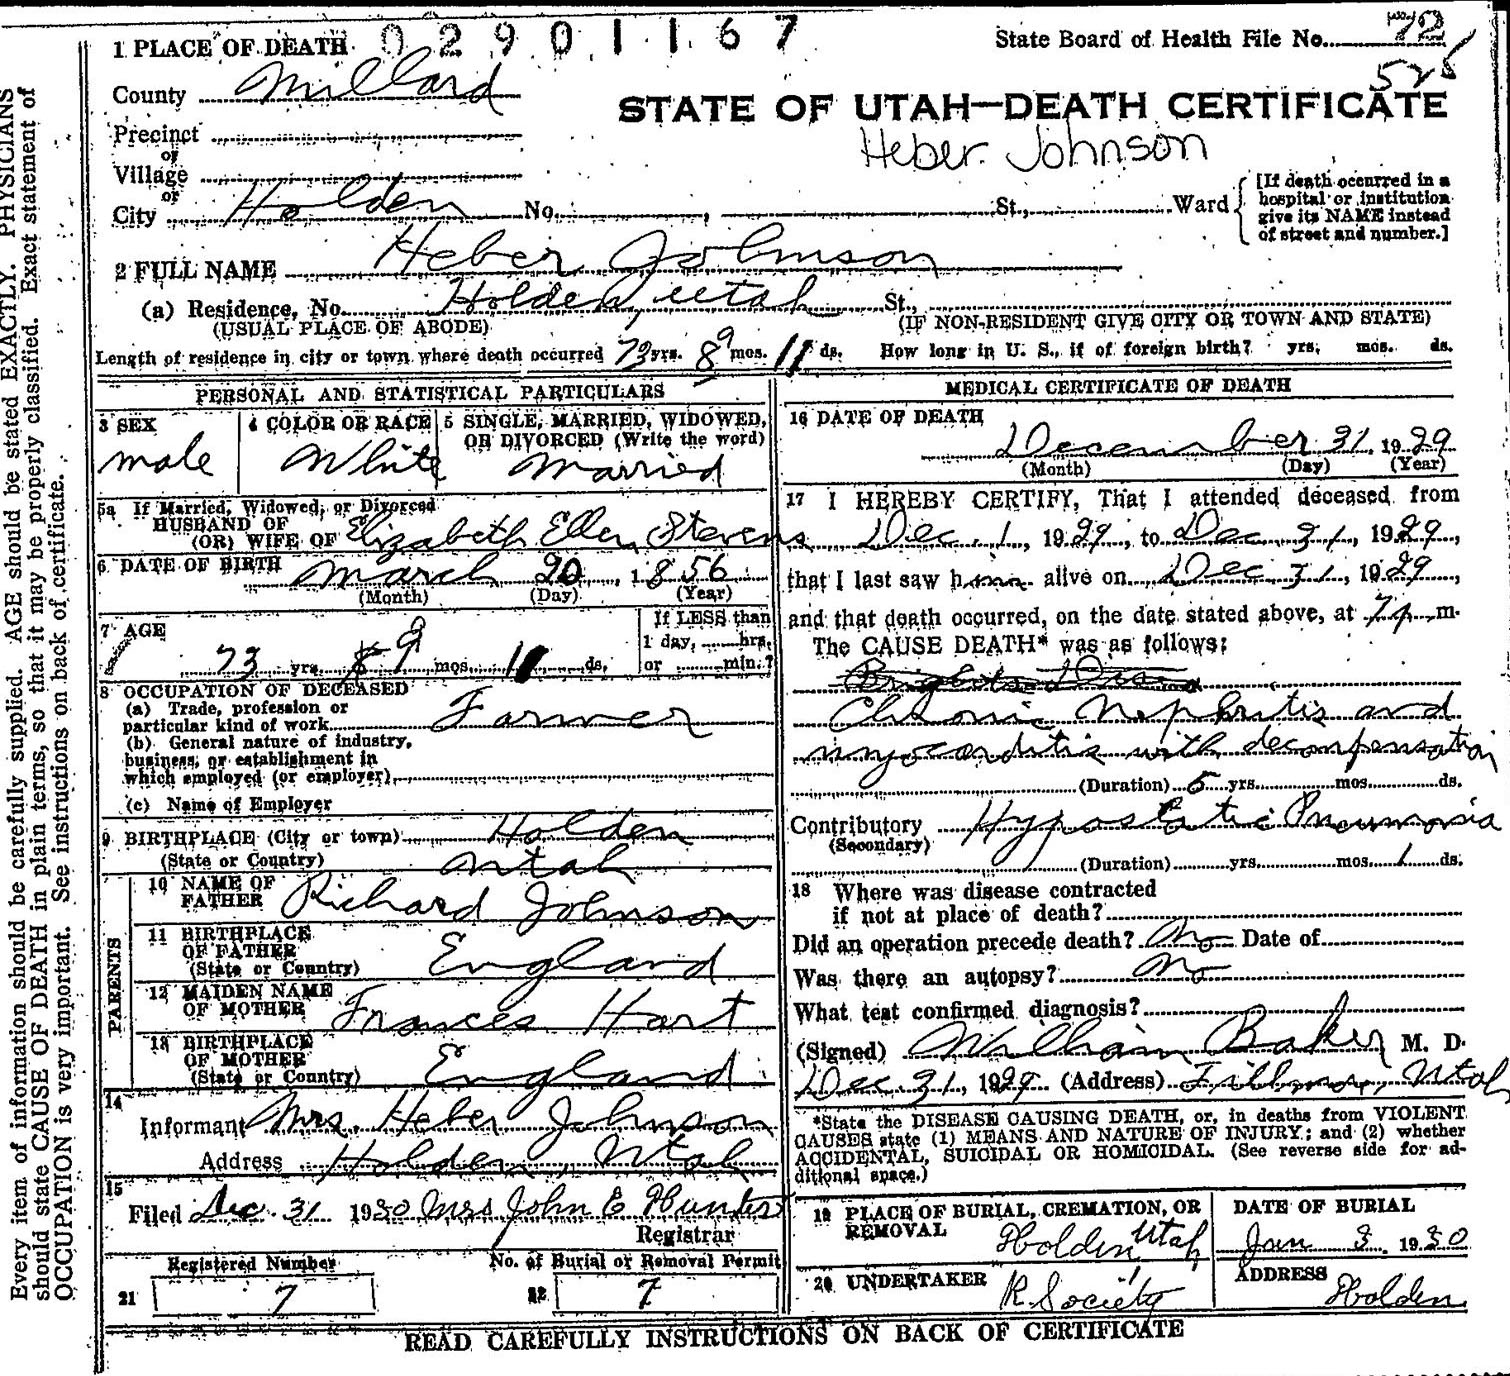 02901167
State Board of Health File No. 72
525
1 PLACE OF DEATH
County Millard
STATE OF UTAH—DEATH CERTIFICATE
Heber Johnson
Precinct
or
Village
or
City Holden No. , St., Ward
[If death occurred in a
hospital or institution
give its NAME instead
of street and number.]
2 FULL NAME Heber Johnson
(a) Residence, No. Holden, Utah St.,
(USUAL PLACE OF ABODE) (IF NON-RESIDENT GIVE CITY OR TOWN AND STATE)
Length of residence in city or town where death occurred 73 yrs. 8 9 mos. 11 ds. How long in U. S., if of foreign birth? yrs. mos. ds.
PERSONAL AND STATISTICAL PARTICULARS
3 SEX
male
4 COLOR OR RACE
White
5 SINGLE, MARRIED, WIDOWED,
OR DIVORCED (Write the word)
Married
5a If Married, Widowed, or Divorced
HUSBAND OF
(OR) WIFE OF Elizabeth Ellen Stevens
6 DATE OF BIRTH March 20, 1856
(Month) (Day) (Year)
7 AGE
73 yrs. 8 9 mos. 11 ds.
If LESS than
1 day, hrs.
or min.?
8 OCCUPATION OF DECEASED
(a) Trade, profession or
particular kind of work Farmer
(b) General nature of industry,
business, or establishment in
which employed (or employer)
(c) Name of Employer
9 BIRTHPLACE (City or town) Holden
(State or Country) Utah
PARENTS
10 NAME OF
FATHER Richard Johnson
11 BIRTHPLACE
OF FATHER
(State or Country) England
12 MAIDEN NAME
OF MOTHER Frances Hart
13 BIRTHPLACE
OF MOTHER
(State or Country) England
14
Informant Mrs. Heber Johnson
Address Holden, Utah
15
Filed Dec. 31 1930 Mrs John E Hunter
Registrar
Registered Number
21 7
No. of Burial or Removal Permit
22 7
MEDICAL CERTIFICATE OF DEATH
16 DATE OF DEATH
December 31, 1929
(Month) (Day) (Year)
17 I HEREBY CERTIFY, That I attended deceased from
Dec. 1, 1929, to Dec 31, 1929,
that I last saw him alive on Dec 31, 1929,
and that death occurred, on the date stated above, at m.
The CAUSE DEATH* was as follows:
Chronic Nephritis and
myocarditis with decompensation
(Duration) 5 yrs. mos. ds.
Contributory Hypostatic Pneumonia
(Secondary)
(Duration) yrs. mos. 1 ds.
18 Where was disease contracted
if not at place of death?
Did an operation precede death? No Date of
Was there an autopsy? No
What test confirmed diagnosis?
(Signed) William Baker M. D.
Dec 31, 1929 (Address) Fillmore, Utah
*State the DISEASE CAUSING DEATH, or, in deaths from VIOLENT
CAUSES state (1) MEANS AND NATURE OF INJURY; and (2) whether
ACCIDENTAL, SUICIDAL OR HOMICIDAL. (See reverse side for ad-
ditional space.)
19 PLACE OF BURIAL, CREMATION, OR
REMOVAL Holden Utah
DATE OF BURIAL
Jan 3 1930
20 UNDERTAKER R. Society
ADDRESS
Holden
READ CAREFULLY INSTRUCTIONS ON BACK OF CERTIFICATE
Every item of information should be carefully supplied. AGE should be stated EXACTLY. PHYSICIANS
should state CAUSE OF DEATH in plain terms, so that it may be properly classified. Exact statement of
OCCUPATION is very important. See instructions on back of certificate.